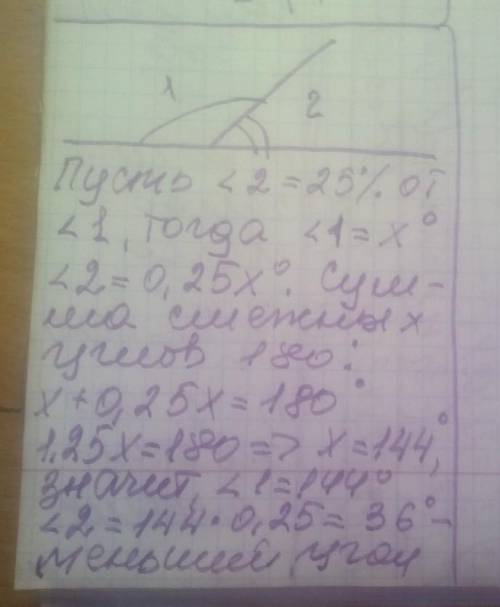 1
2
Пусть <2=25% от
<1, тогда <1=x°
<2=0,25x°. Сум-
ма смежных
углов 180°:
x+0,25x=180°
1,25x=180=> x=144°,
значит, <1=144°
<2=144·0,25=36°-
меньший угол